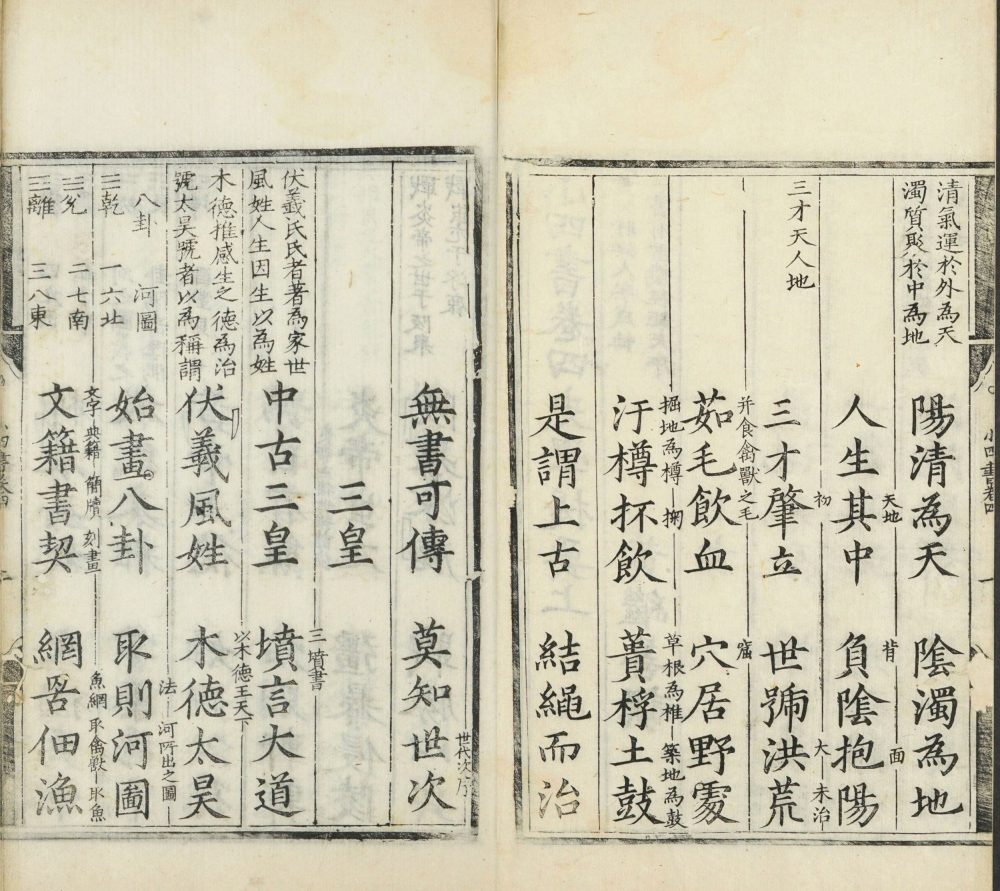 清氣運於外為天
濁質聚於中為地
陽清為天 陰濁為地
天地 背 面
人生其中 負陰抱陽
初 大 未治
三才天人地
三才肇立 世號洪荒
并食禽獸之毛 窟
茹毛飲血 穴居野處
掘地為樽 掬 草根為椎 築地為鼓
汙樽抔飲 蕢桴土鼓
是謂上古 結繩而治
小四書卷四
世代次序
無書可傳 莫知世次
三皇
三墳書
伏羲氏氏者著為家世
風姓人生因生以為姓
中古三皇 墳言大道
以木德王天下
木德推感生之德為治
號太昊號者以為稱謂
伏羲風姓 木德太昊
法 河所出之圖
八卦 河圖
☰乾 一六北
始畫八卦 取則河圖
文字 典籍 簡牘 刻畫 魚網 取禽獸 取魚
☱兌 二七南
☲離 三八東
文籍書契 網罟佃漁